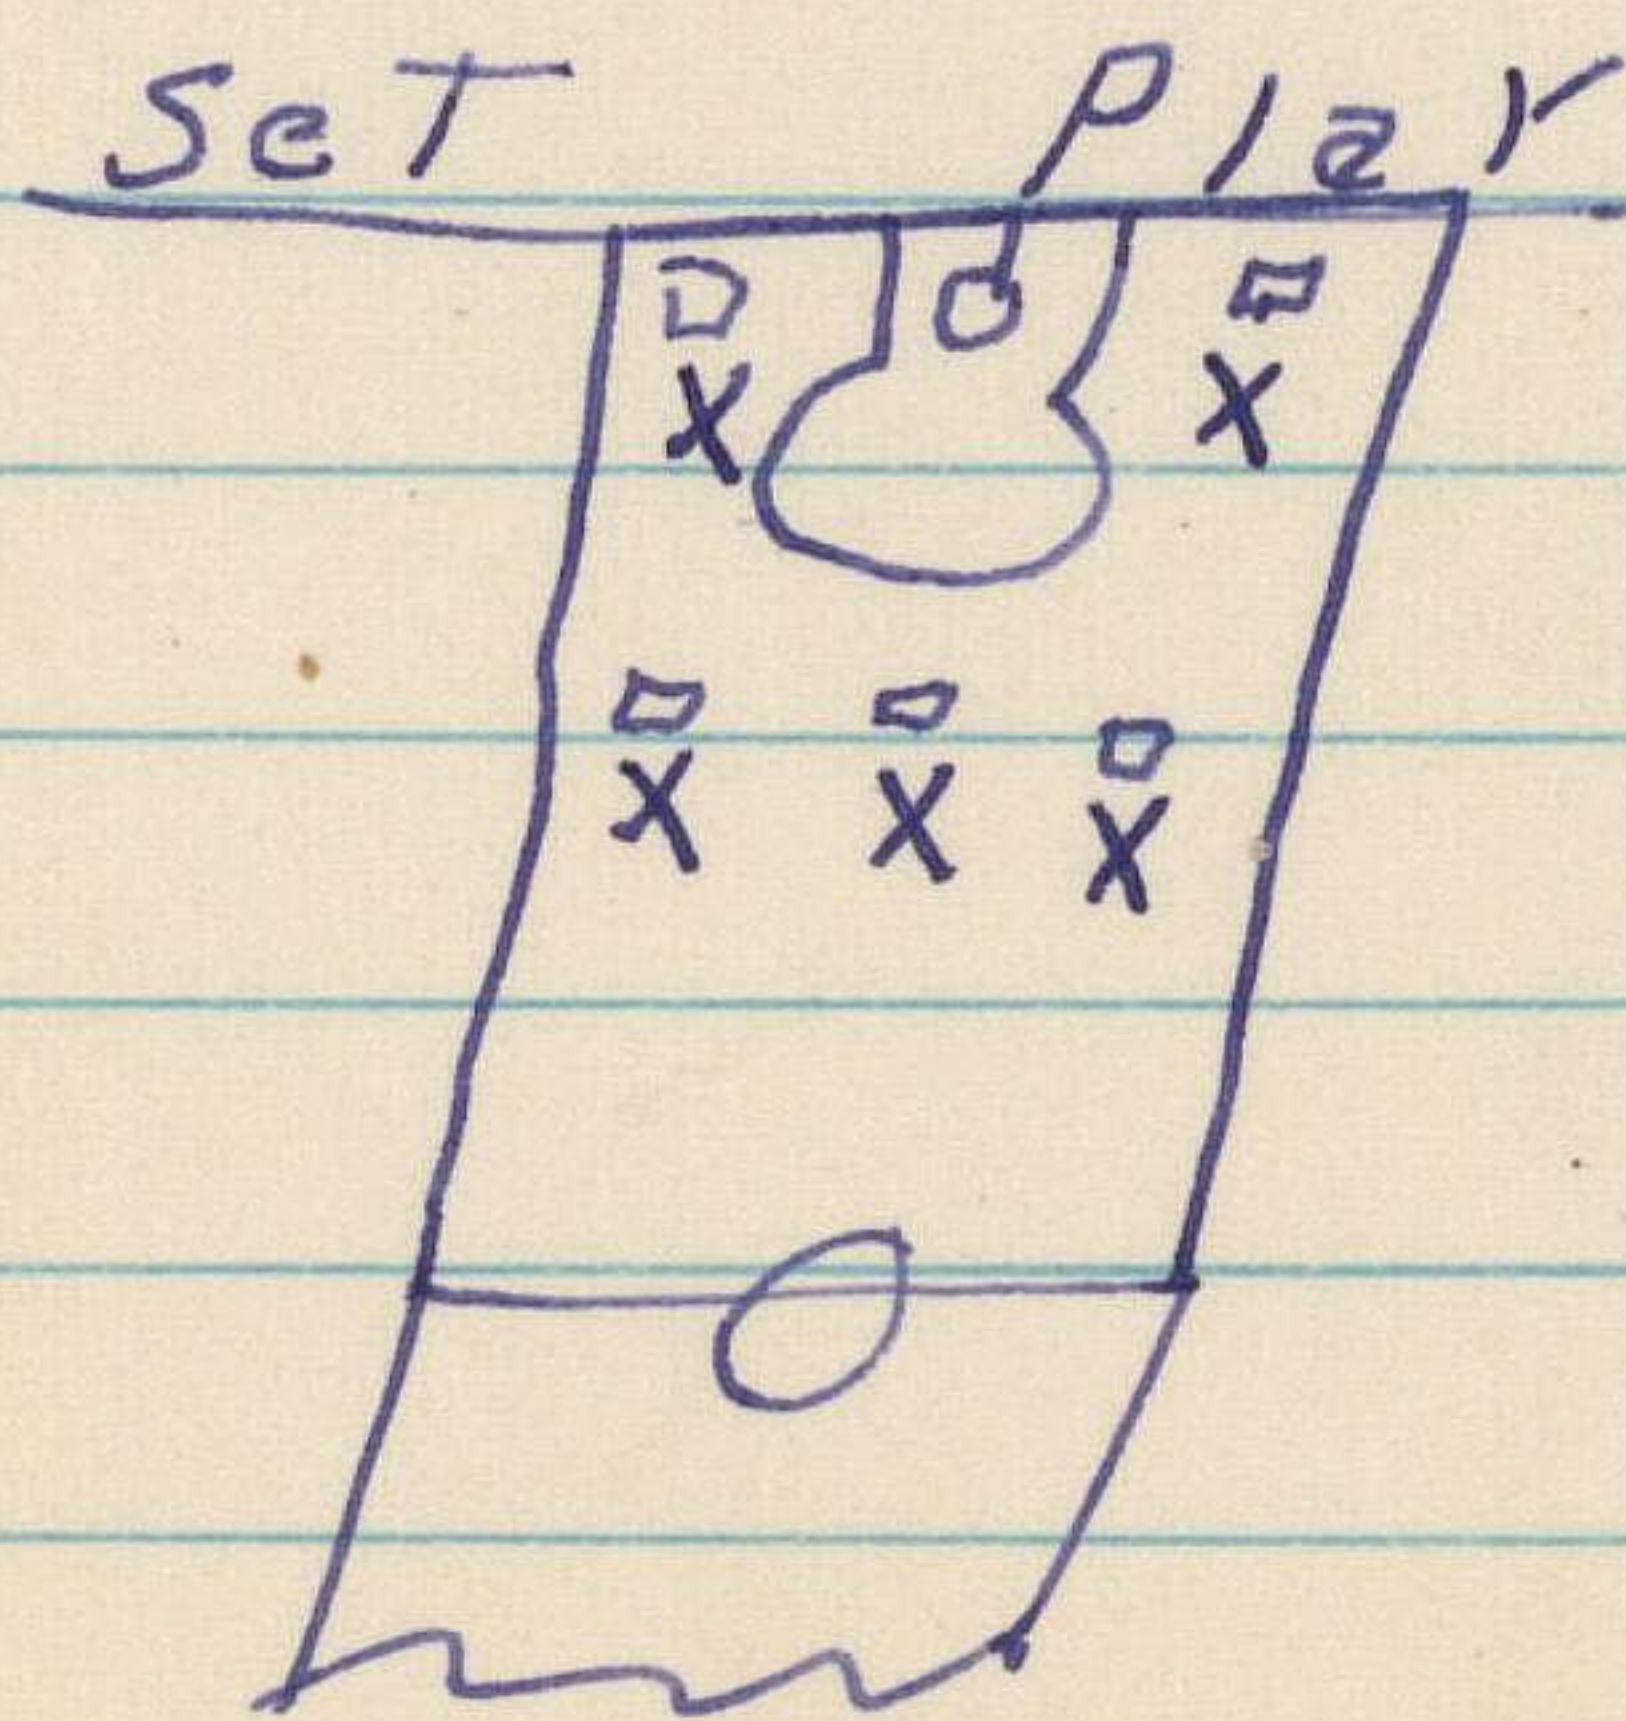 SeT Play
X X
X X X